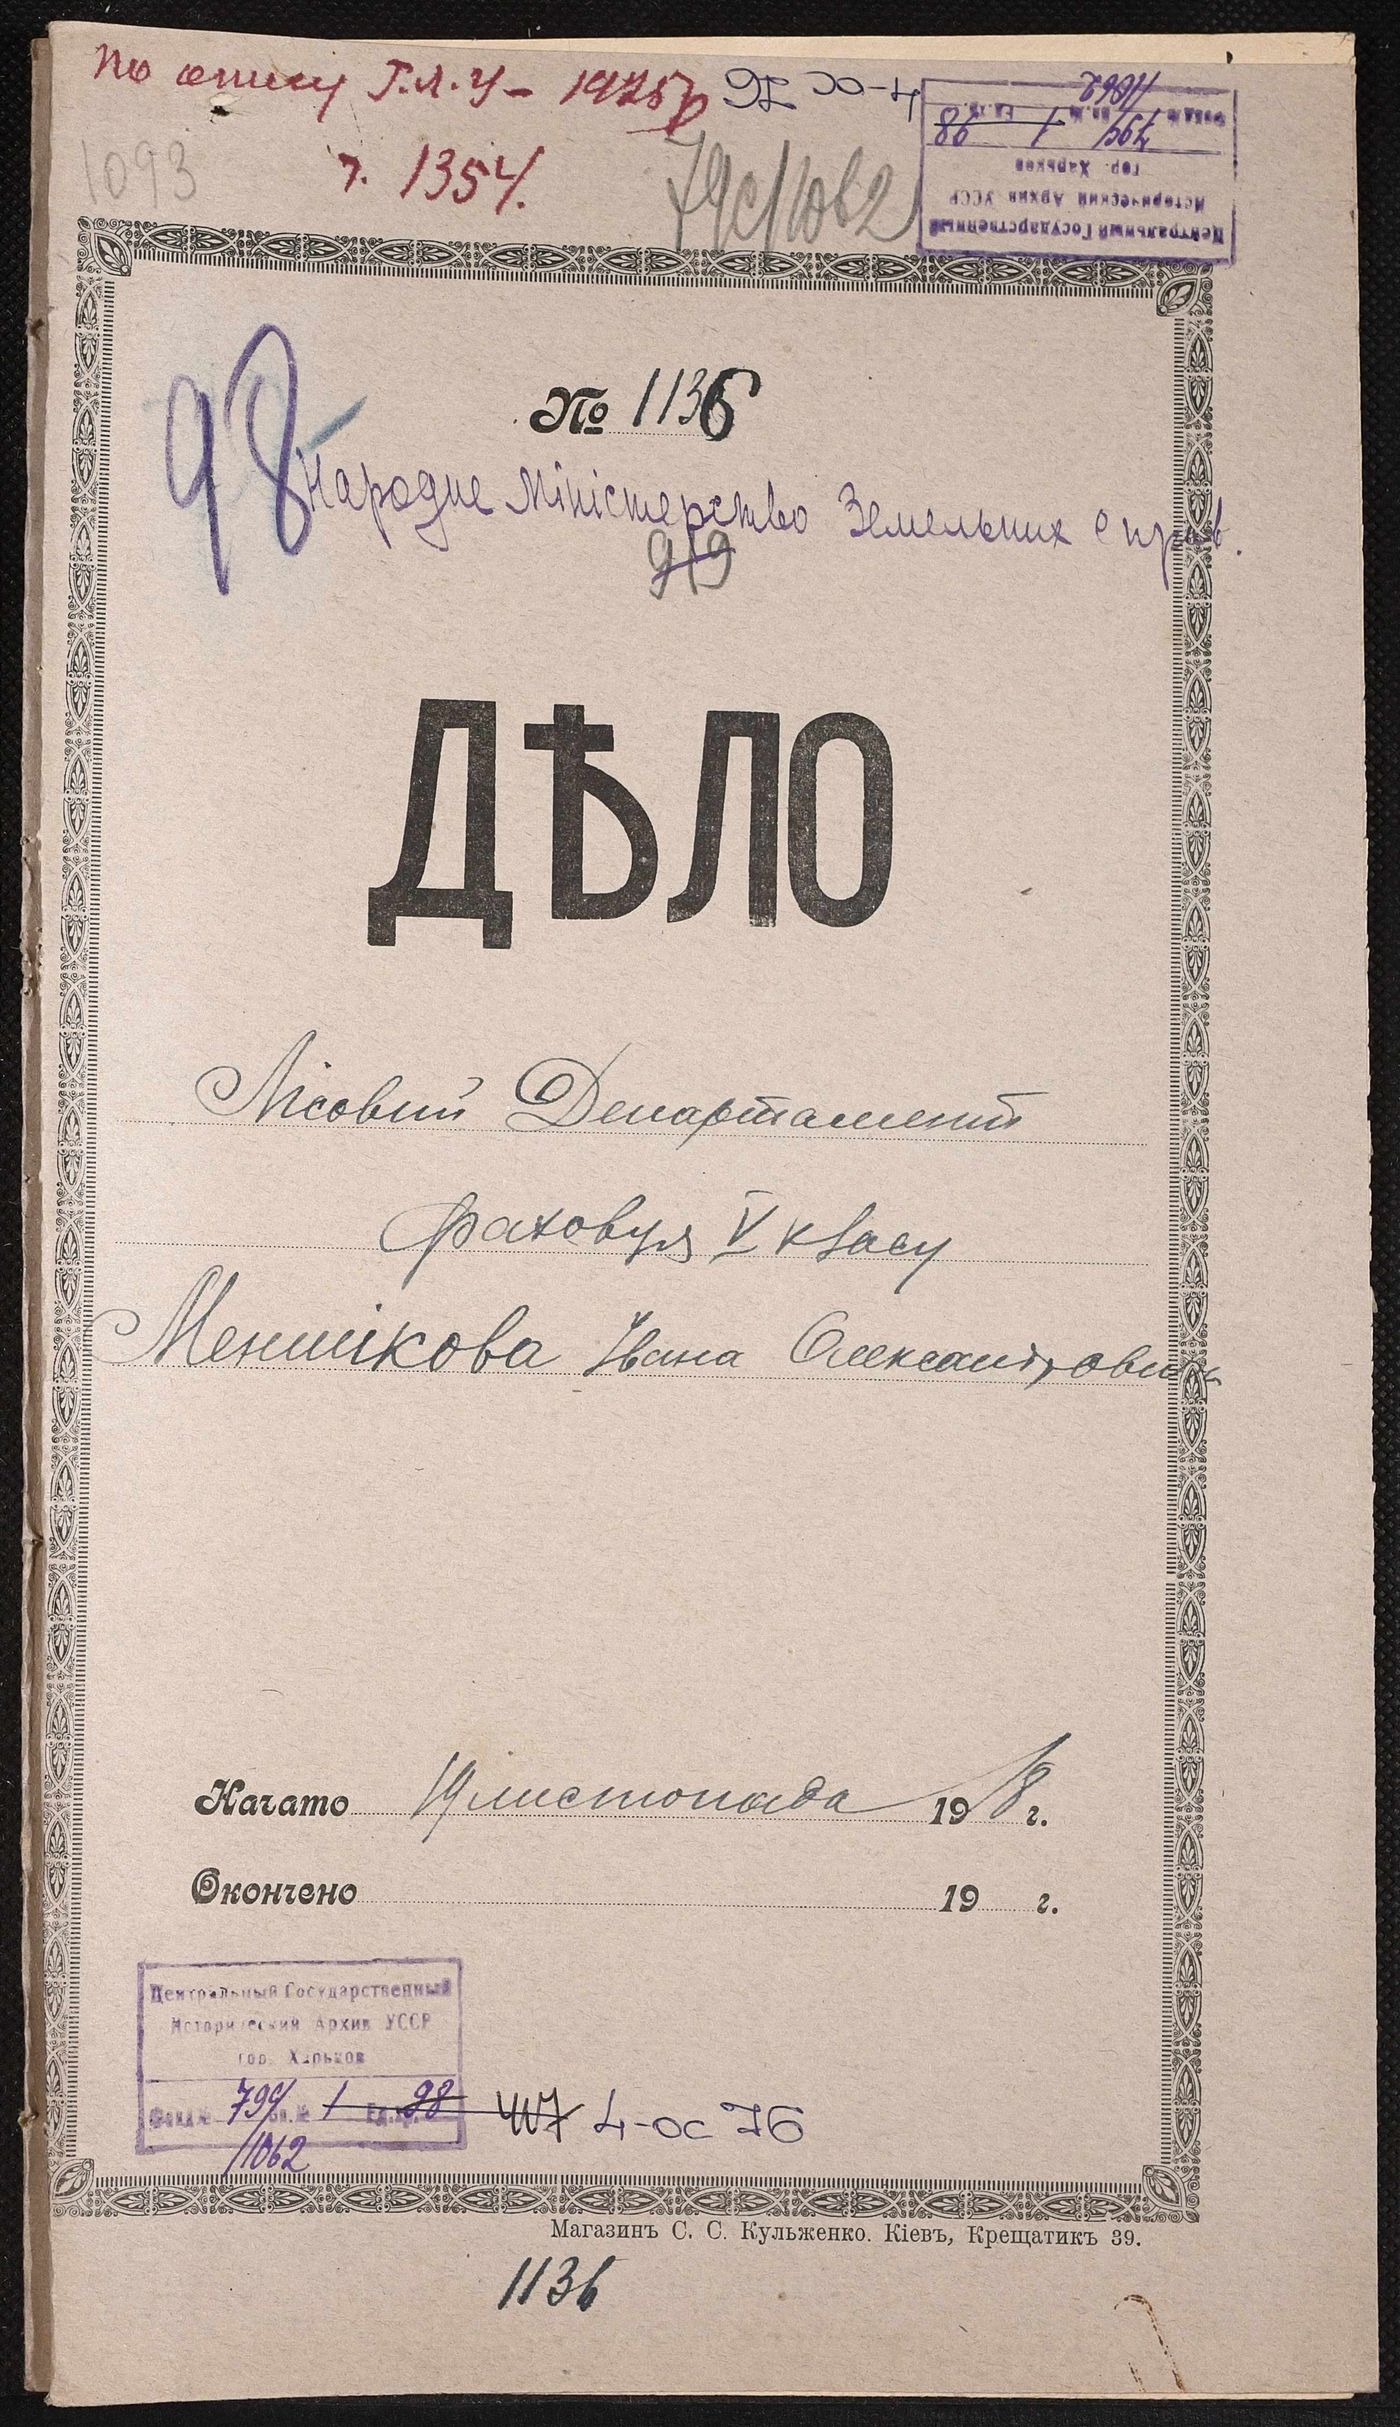 По опису Г.Л.У – 1925 р
ч. 1354.
1093
4-ос 76
79с/1062
Центральный Государственный
Исторический Архив УССР
гор. Харьков
Фонд № 799 Оп. № 1 Ед. хр. 98
1062
№ 1136
98
Народне Міністерство Земельних справ.
919
ДѢЛО
Лісовий Департамент
фаховця V класу
Меншікова Івана Олександровича
Начато 19 листопада 1918 г.
Окончено 19 г.
Центральный Государственный
Исторический Архив УССР
гор. Харьков
Фонд № 799 Оп. № 1 Ед. хр. 98
1062
4-ос 76
Магазинъ С. С. Кульженко. Кіевъ, Крещатикъ 39.
1136